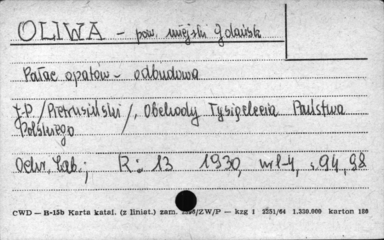 OLIWA - pow. miejski Gdańsk
Pałac opatów - odbudowa
J.P. /Pietrusiński/, Obchody Tysiąclecia Państwa
Polskiego
Ochr. Zab.; R: 13 1930, nr 1-4, s. 94, 98
CWD — B-15b Karta katal. (z liniat.) zam. /ZW/P — kzg 1 3251/64 1.330.000 karton 180